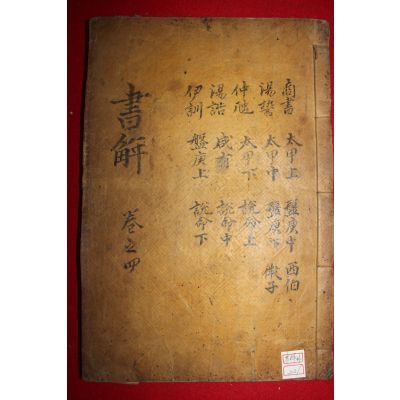 商書 太甲上 盤庚中 西伯
湯誓 太甲中 盤庚下 微子
仲虺 太甲下 說命上
湯誥 咸有 說命中
伊訓 盤庚上 說命下
書解
卷之四